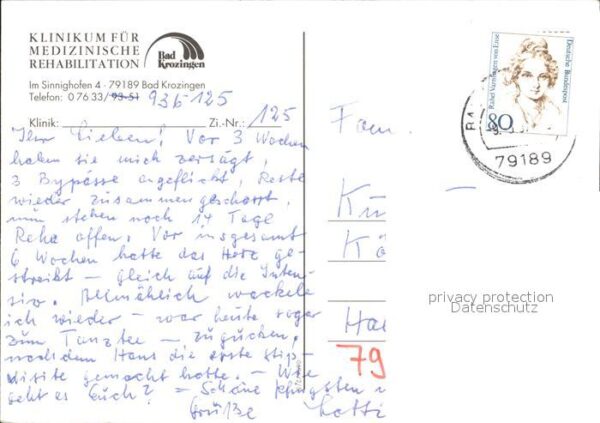 KLINIKUM FÜR
MEDIZINISCHE
REHABILITATION
Bad
Krozingen
Im Sinnighofen 4 · 79189 Bad Krozingen
Telefon: 0 76 33 / 93-51 936-125
Klinik: Zi.-Nr.: 125
Ihr Lieben! Vor 3 Wochen
haben sie mich zersägt,
3 Bypässe angeflickt, Reste
wieder zusammengeschorrt,
nun stehen noch 14 Tage
Reha offen. Vor insgesamt
6 Wochen hatte das Herz ge-
streikt – gleich auf die Inten-
siv. Allmählich wackele
ich wieder – war heute sogar
zum Tanztee – zugucken,
nachdem Hans die erste Stip-
visite gemacht hatte. – Wie
geht es Euch? – Schöne Pfingsten
Grüße Lotti
Fam.
Kü
Kö
Ha
79
Rahel Varnhagen von Ense
Deutsche Bundespost
80
79189
privacy protection
Datenschutz